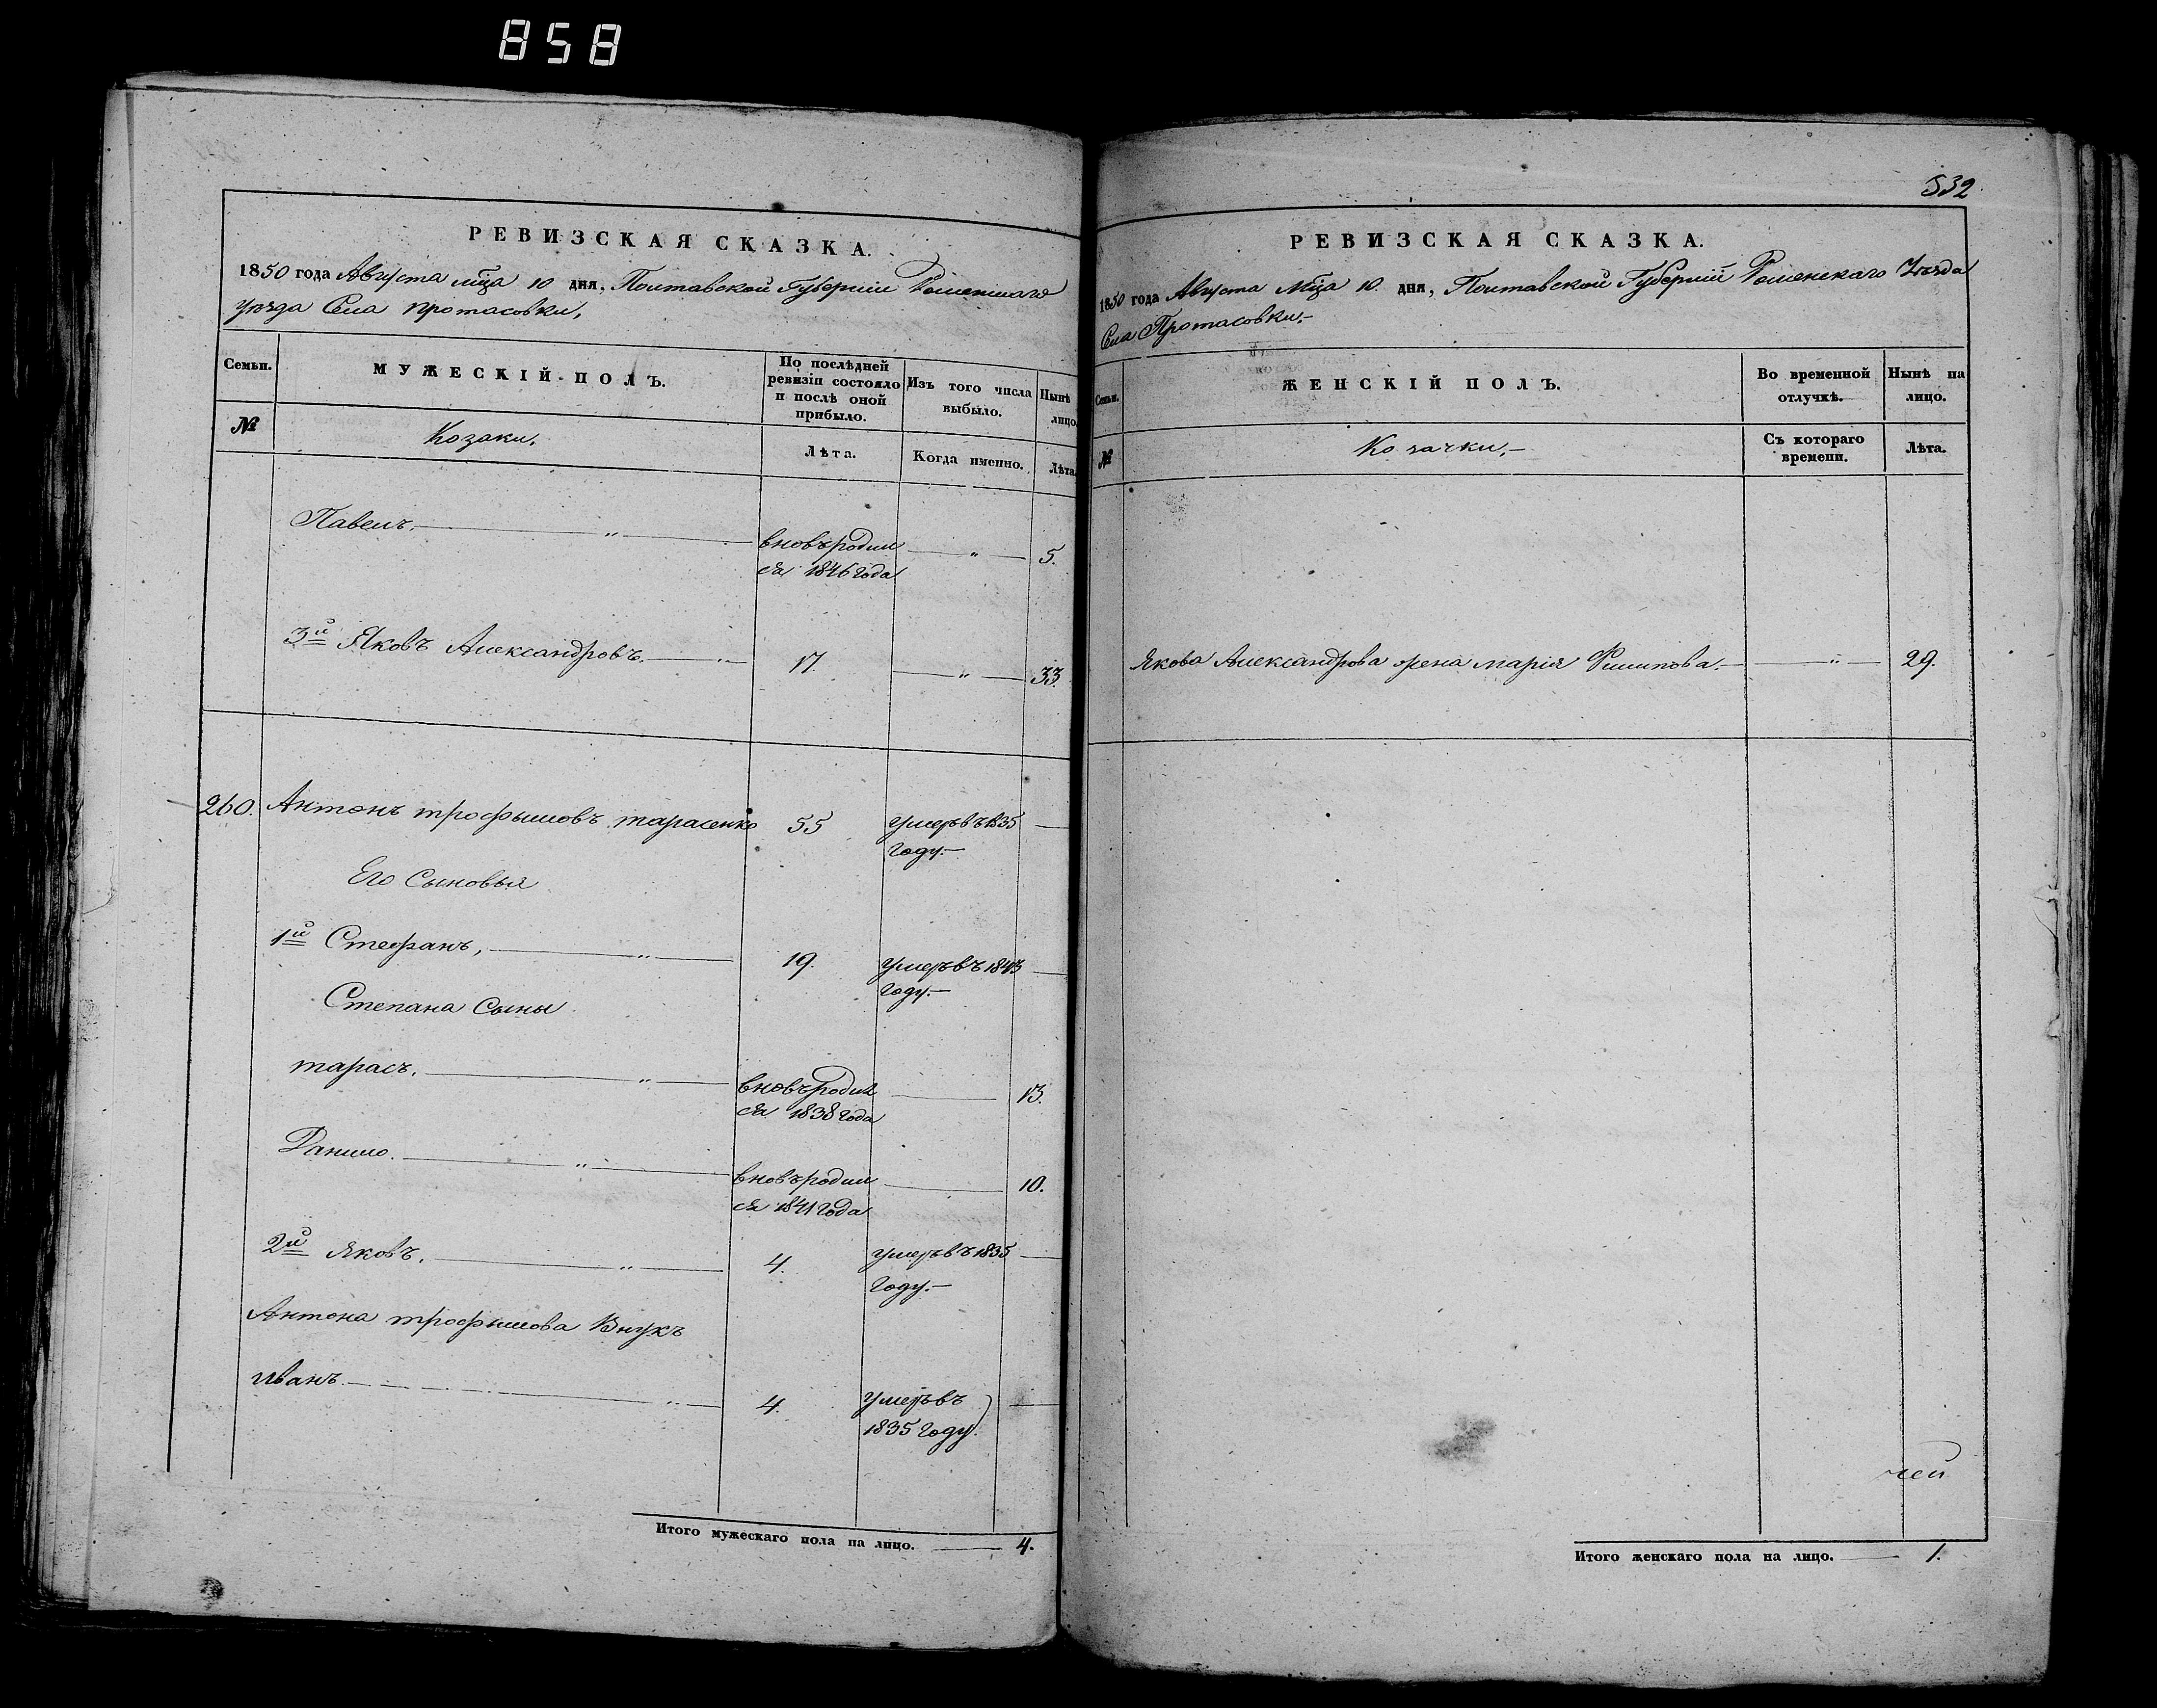 858
РЕВИЗСКАЯ СКАЗКА.
1850 года Августа мца 10 дня, Полтавской Губернии Роменскаго
уезда Села протасовки,
Семьи.
МУЖЕСКІЙ ПОЛЪ.
По послѣдней
ревизіи состояло
и послѣ оной
прибыло.
Изъ того числа
выбыло.
Нынѣ
лицо
№
Козаки.
Лѣта.
Когда именно.
Лѣта.
Павелъ. — " — вновьродил — " — 5.
ся 1846 года
3й Яковъ Александровъ. — " — 17. — " — 33.
260. Антонъ трофымовъ тарасенко 55 умеръвъ 1835 —
году. —
Его Сыновья
1й Стефанъ, — " — 19. умеръвъ 1843 —
году. —
Степана Сыны
тарасъ. — " — вновьродил — 13.
ся 1838 года
Данило. — " — вновьродил — 10.
ся 1841 года
2й Яковъ. — " — 4. умеръвъ 1835 —
году. —
Антона трофымова Внукъ
иванъ. — " — 4. умеръвъ —
1835 году.
Итого мужескаго пола на лицо. — 4.
532
РЕВИЗСКАЯ СКАЗКА.
1850 года Августа мца 10. дня, Полтавской Губерній Роменскаго Уезда
Села Протасовки, —
Семьи.
ЖЕНСКІЙ ПОЛЪ.
Во временной
отлучкѣ.
Нынѣ на
лицо.
№
Козачки, —
Съ котораго
времени.
Лѣта.
Якова Александрова жена марія Филипова. — " — 29.
чей
Итого женскаго пола на лицо. — 1.